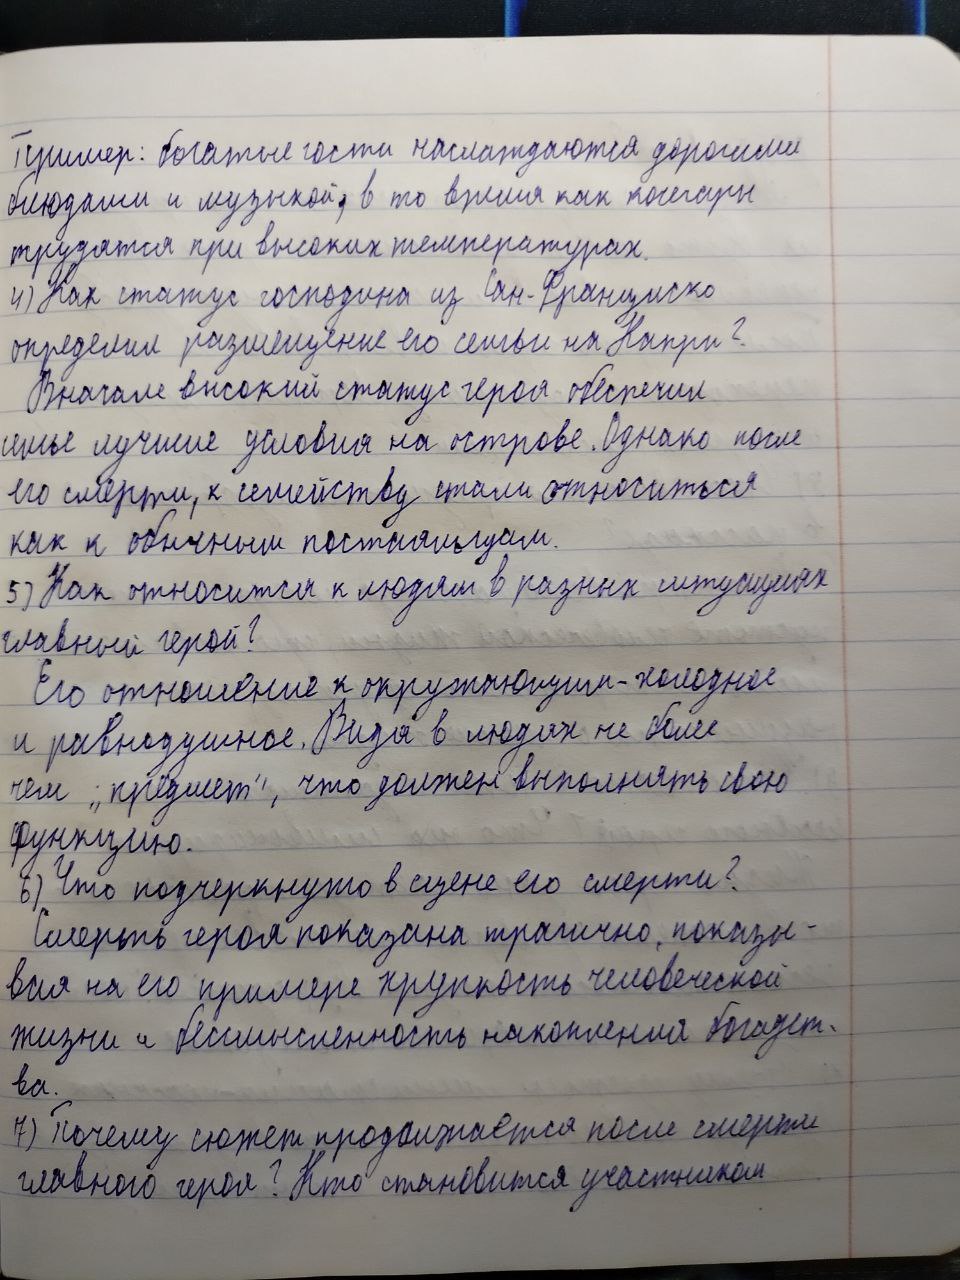 Пример: богатые гости наслаждаются дорогими
блюдами и музыкой, в то время как кочегары
трудятся при высоких температурах.
4) Как статус господина из Сан-Франциско
определил размещение его семьи на Капри?
Вначале високий статус героя обеспечил
семье лучшие условия на острове. Однако после
его смерти, к семейству стали относиться
как к обычным постояльцам.
5) Как относится к людям в разных ситуациях
главный герой?
Его отношение к окружающим - холодное
и равнодушное. Видя в людях не более
чем „предмет", что должен выполнять свою
функцию.
6) Что подчеркнуто в сцене его смерти?
Смерть героя показана трагично, показы-
вая на его примере хрупкость человеческой
жизни и бессмысленность накопления богадст-
ва.
7) Почему сюжет продолжается после смерти
главного героя? Кто становится участником